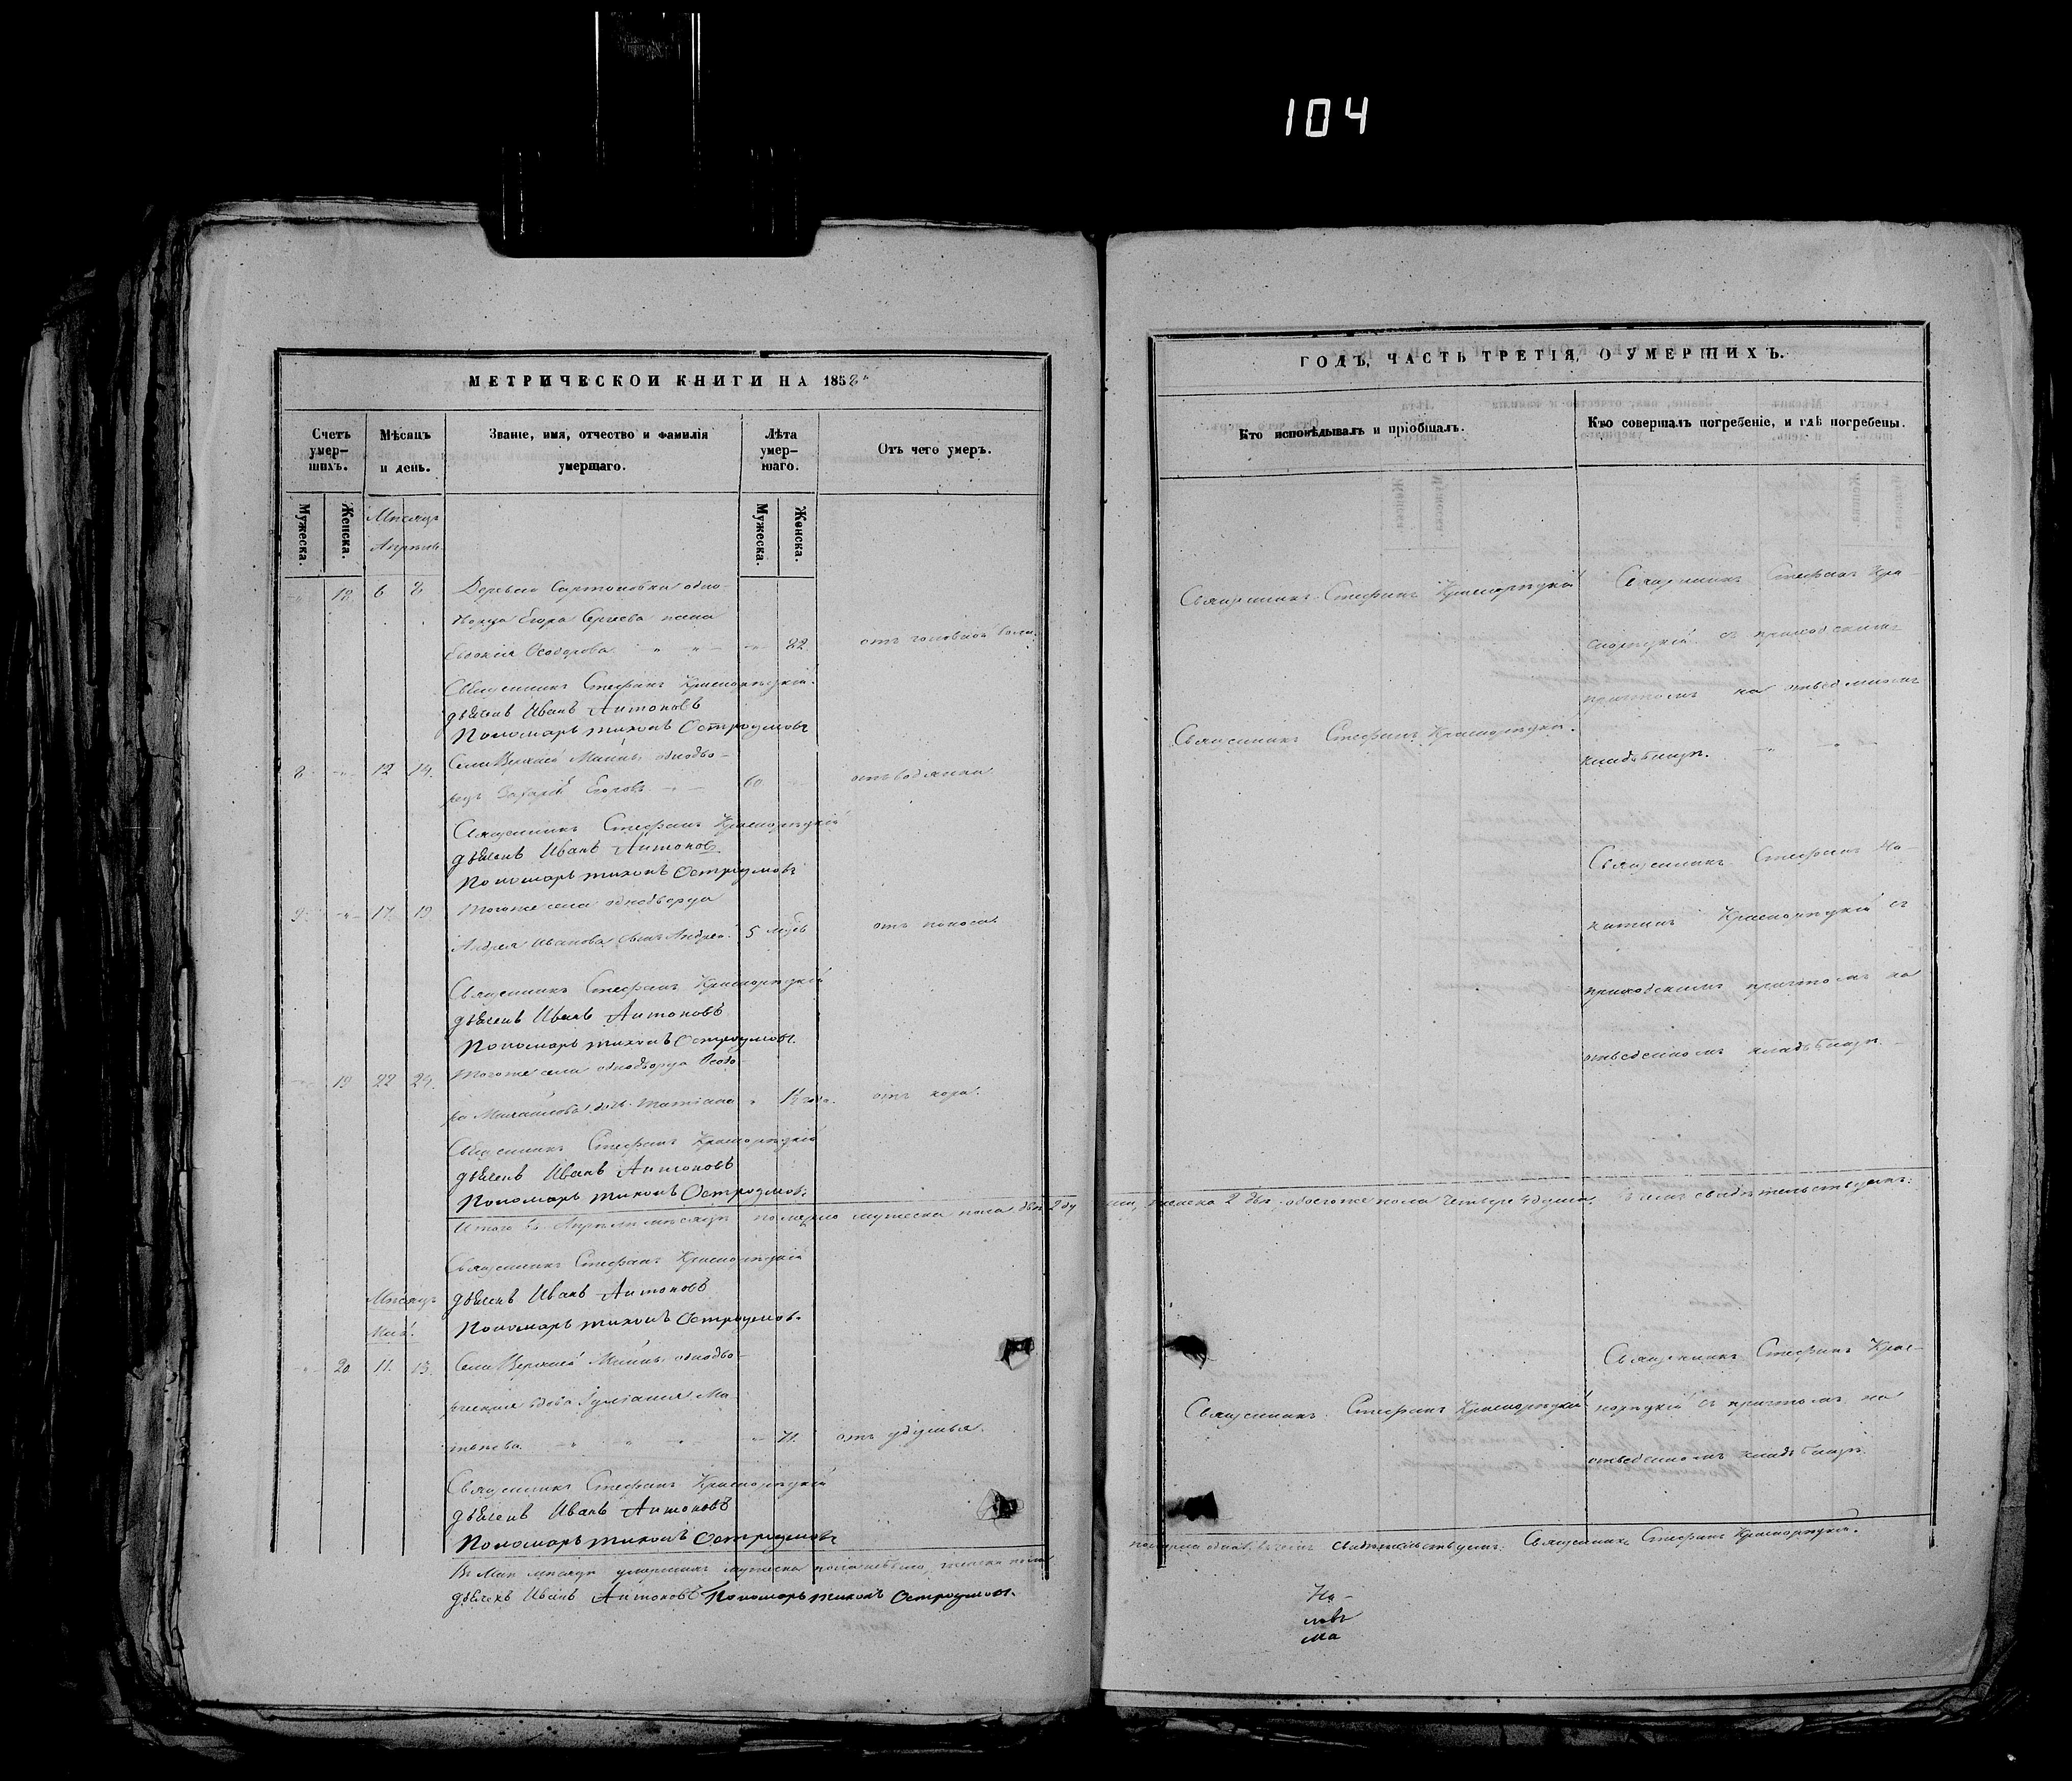 104
МЕТРИЧЕСКОЙ КНИГИ НА 1858
Счетъ умер-
шихъ.
Мѣсяцъ
и день.
Званіе, имя, отчество и фамилія
умершаго.
Лѣта
умер-
шаго.
Отъ чего умеръ.
Мужеска.
Женска.
Мужеска.
Женска.
Мѣсяцъ
Апрѣль
18 6 8 Деревни одно-
дворца Егора Сергѣева жена
Евдокія Ѳеодорова 82 отъ головной боли.
Священникъ Стефанъ Красноряцкій.
дьячекъ Иванъ Антоновъ
Пономарь Тихонъ Остроумовъ
8 12 14 Села Верхней Майны однодво-
рецъ Захарій Егоровъ 60 отъ водянки
Священникъ Стефанъ Красноряцкій
дьячекъ Иванъ Антоновъ
Пономарь Тихонъ Остроумовъ
9 17 19 Тогоже села однодворца
Андрея Иванова сынъ Андрей 5 отъ поноса
Священникъ Стефанъ Красноряцкій
дьячекъ Иванъ Антоновъ
Пономарь Тихонъ Остроумовъ
19 22 24 Тогоже села однодворца Ѳеодо-
ра Михайлова дочь Татіана 1½ года отъ кора.
Священникъ Стефанъ Красноряцкій
дьячекъ Иванъ Антоновъ
Пономарь Тихонъ Остроумовъ
Итого въ Апрѣлѣ мѣсяцѣ померло мужеска пола два 2 ду
Священникъ Стефанъ Красноряцкій
Мѣсяцъ дьячекъ Иванъ Антоновъ
Май. Пономарь Тихонъ Остроумовъ
20 11 13 Села Верхней Майны однодво-
рческая вдова Іуліанія Ма
твѣева 71 отъ удушья.
Священникъ Стефанъ Красноряцкій
дьячекъ Иванъ Антоновъ
Пономарь Тихонъ Остроумовъ
Въ Маѣ мѣсяцѣ умершихъ мужеска пола небыло, женска пола
дьячекъ Иванъ Антоновъ Пономарь Тихонъ Остроумовъ.
ГОДЪ, ЧАСТЬ ТРЕТІЯ, О УМЕРШИХЪ.
Кто исповѣдывалъ и пріобщалъ.
Кто совершалъ погребеніе, и гдѣ погребены.
Священникъ Стефанъ Красноряцкій
Священникъ Стефанъ Кра-
сноряцкій съ приходскимъ
причтомъ на отведенномъ
кладбищѣ.
Священникъ Стефанъ Красноряцкій.
Священникъ Стефанъ
Красноряцкій съ
приходскимъ причтомъ на
отведенномъ кладбищѣ.
женска 2 двѣ, обоегоже пола четыре 4 души. Въ чемъ свидѣтельствуемъ:
Священникъ Стефанъ Красноряцкій
Священникъ Стефанъ Крас-
норяцкій съ причтомъ на
отведенномъ кладбищѣ.
померла одна. Въ чемъ свидѣтельствуемъ: Священникъ Стефанъ Красноряцкій.